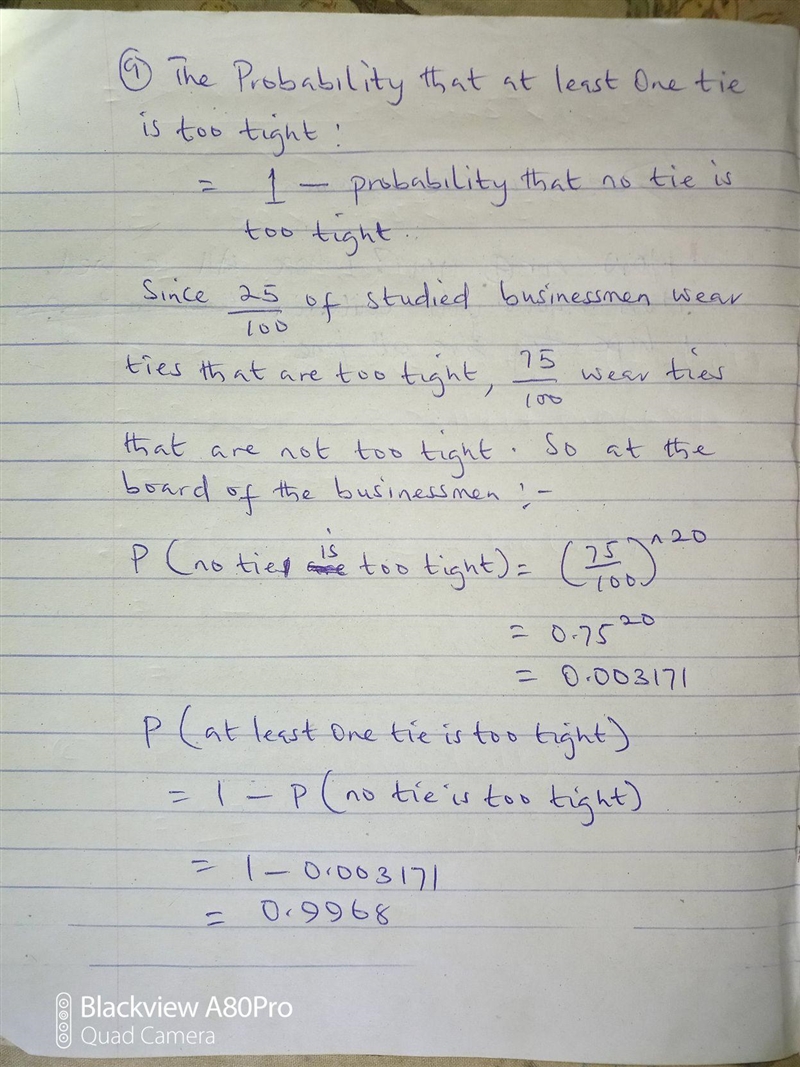 (a) The Probability that at least One tie
is too tight :
= 1 - probability that no tie is
too tight.
Since 25/100 of studied businessmen wear
ties that are too tight, 75/100 wear ties
that are not too tight. So at the
board of the businessmen :-
P (no tie is too tight) = (75/100)^20
= 0.75^20
= 0.003171
P (at least One tie is too tight)
= 1 - P (no tie is too tight)
= 1 - 0.003171
= 0.9968
Blackview A80Pro
Quad Camera